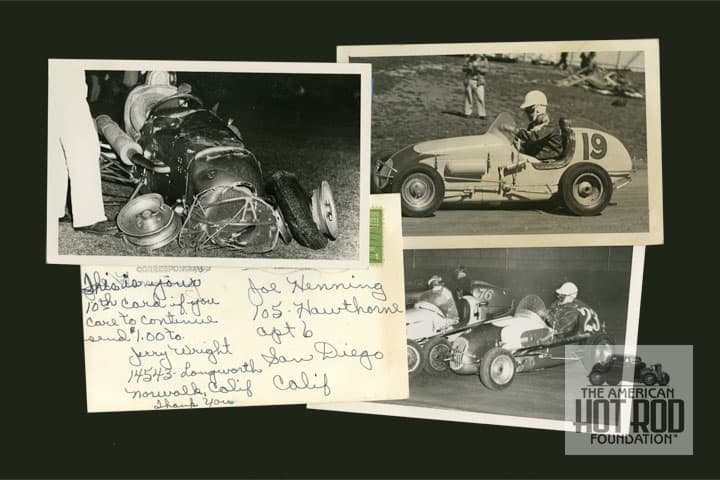 19
CORRESPONDENCE
This is your
10th card if you
care to continue
send $1.00 to.
Jerry Wright
14543-Longworth
Norwalk, Calif
Thank You
Joe Henning
105-Hawthorne
apt 6
San Diego
Calif
1
76
23
THE AMERICAN
HOT ROD
FOUNDATION™